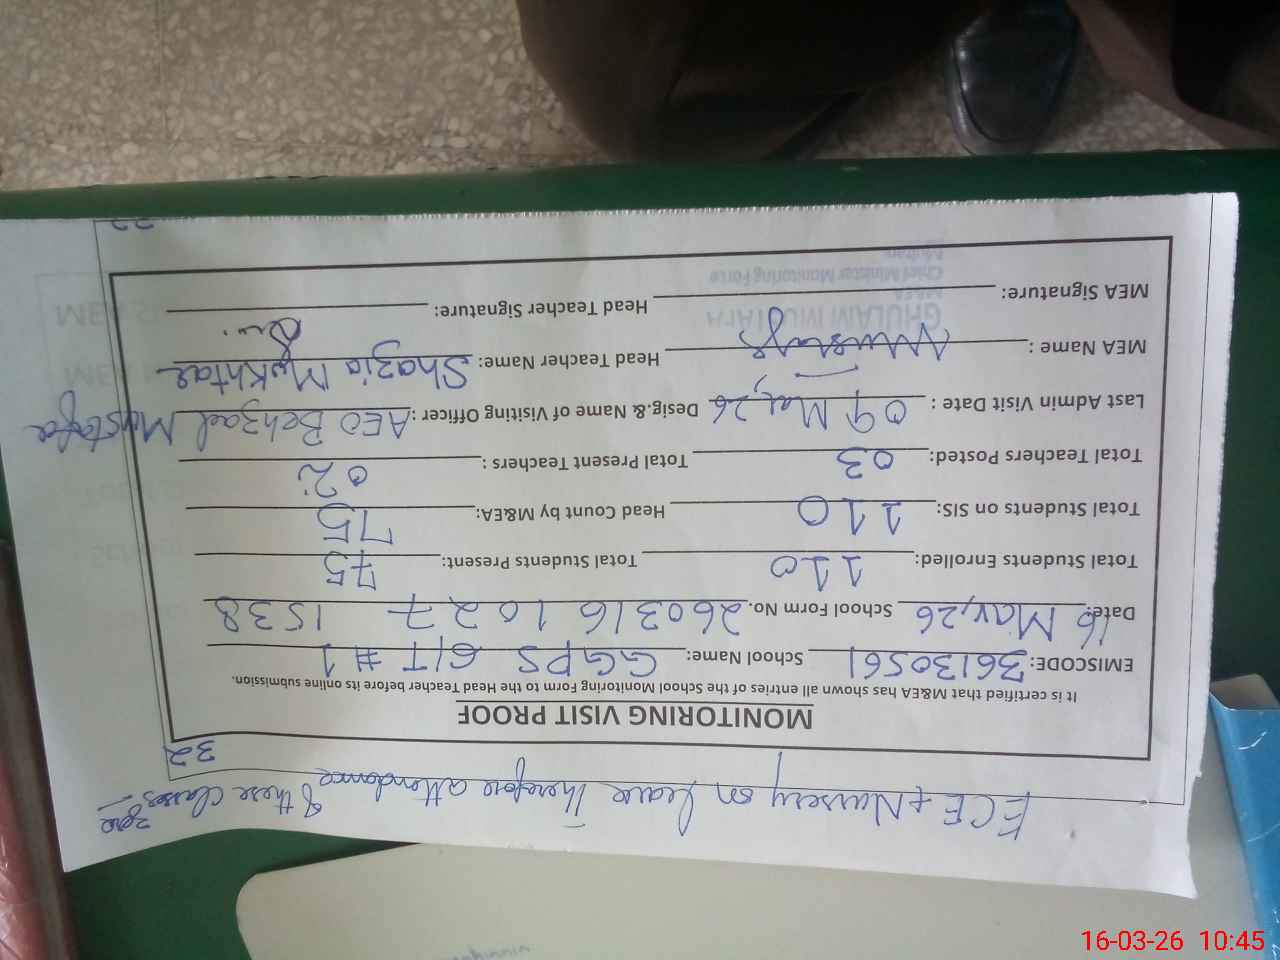 ECE + Nursery on leave Therefore attendance of these classes zero
32
MONITORING VISIT PROOF
It is certified that M&EA has shown all entries of the School Monitoring Form to the Head Teacher before its online submission.
EMISCODE: 36130561 School Name: GGPS GIT #1
Date: 16 Mar,26 School Form No. 260316 1027 1538
Total Students Enrolled: 110 Total Students Present: 75
Total Students on SIS: 110 Head Count by M&EA: 75
Total Teachers Posted: 03 Total Present Teachers : 02
Last Admin Visit Date : 09 Mar, 26 Desig.&. Name of Visiting Officer : AEO Behzad Mustafa
MEA Name : Head Teacher Name: Shazia Mukhtar
MEA Signature: Head Teacher Signature:
GHULAM MUSTAFA
Chief Minister Monitoring Force
16-03-26 10:45